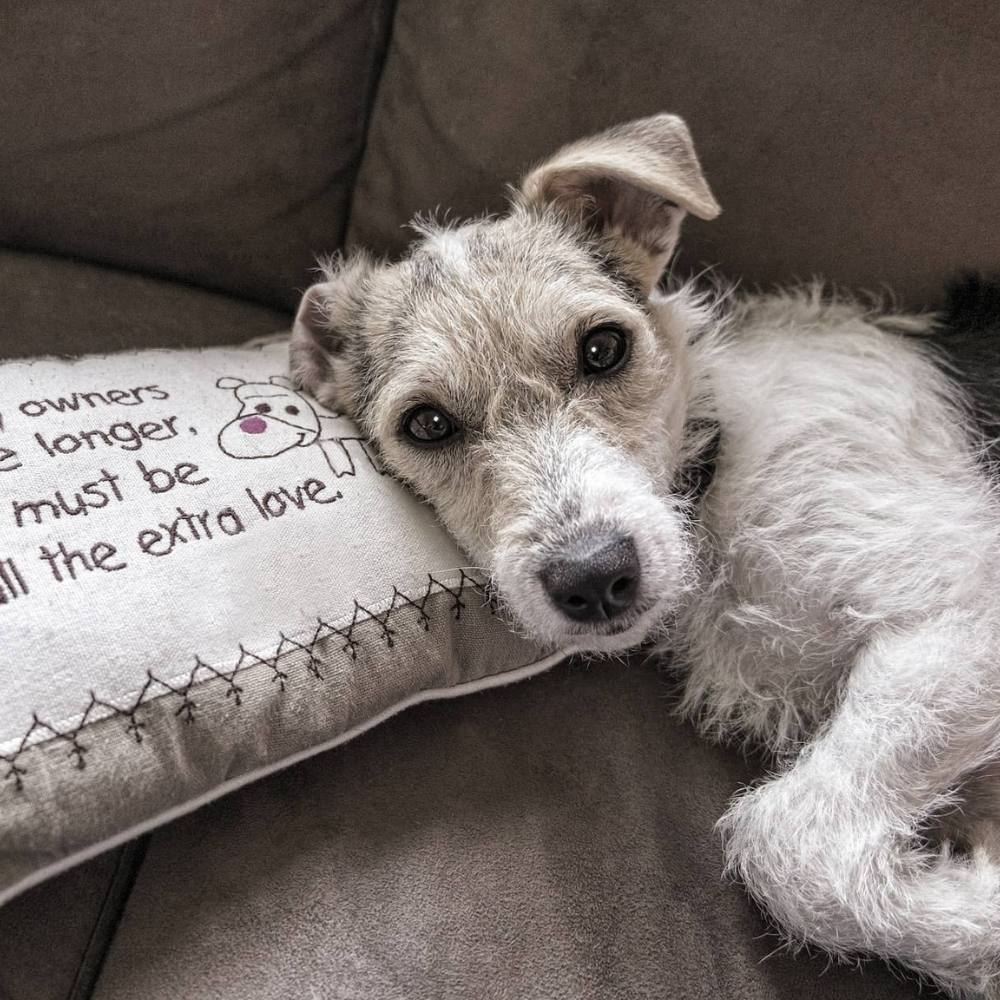 owners
longer,
must be
the extra love.